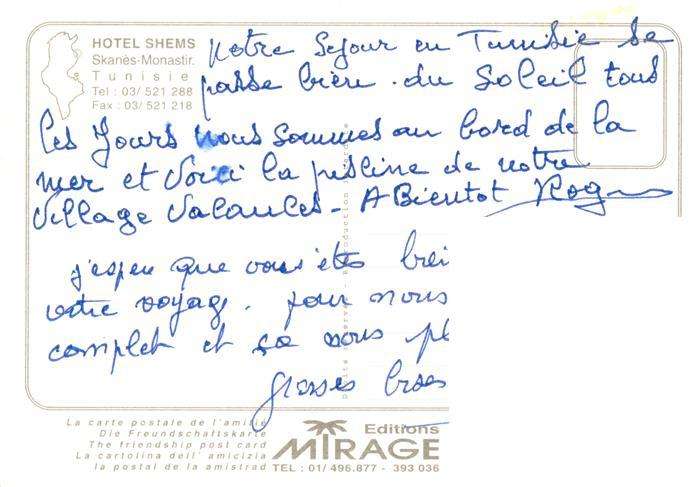 HOTEL SHEMS
Skanès-Monastir.
Tunisie
Tel : 03/ 521 288
Fax : 03/ 521 218
Notre Sejour en Tunisie se
passe bien. du Soleil tous
les Jours nous sommes au bord de la
mer et voici la pisline de notre
village Vacances - A Bientot Rog
j'espere que vous êtes
votre voyage. pour nous
complet et ça nous pl
grosses bises
La carte postale de l'amitié
Die Freundschaftskarte
The friendship post card
La cartolina dell' amicizia
la postal de la amistrad
Editions
MIRAGE
TEL : 01/ 496.877 - 393 036